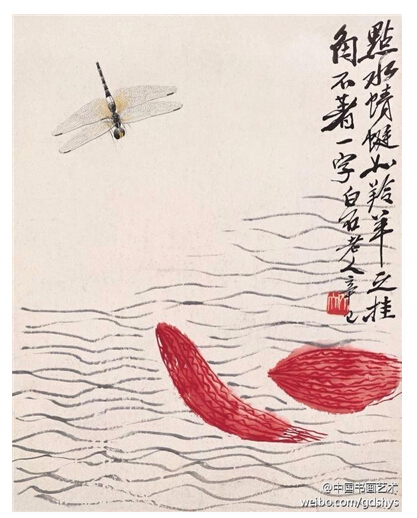 點水蜻蜓如羚羊之挂
角不著一字白石老人辛巳
@中国书画艺术
weibo.com/gdshys